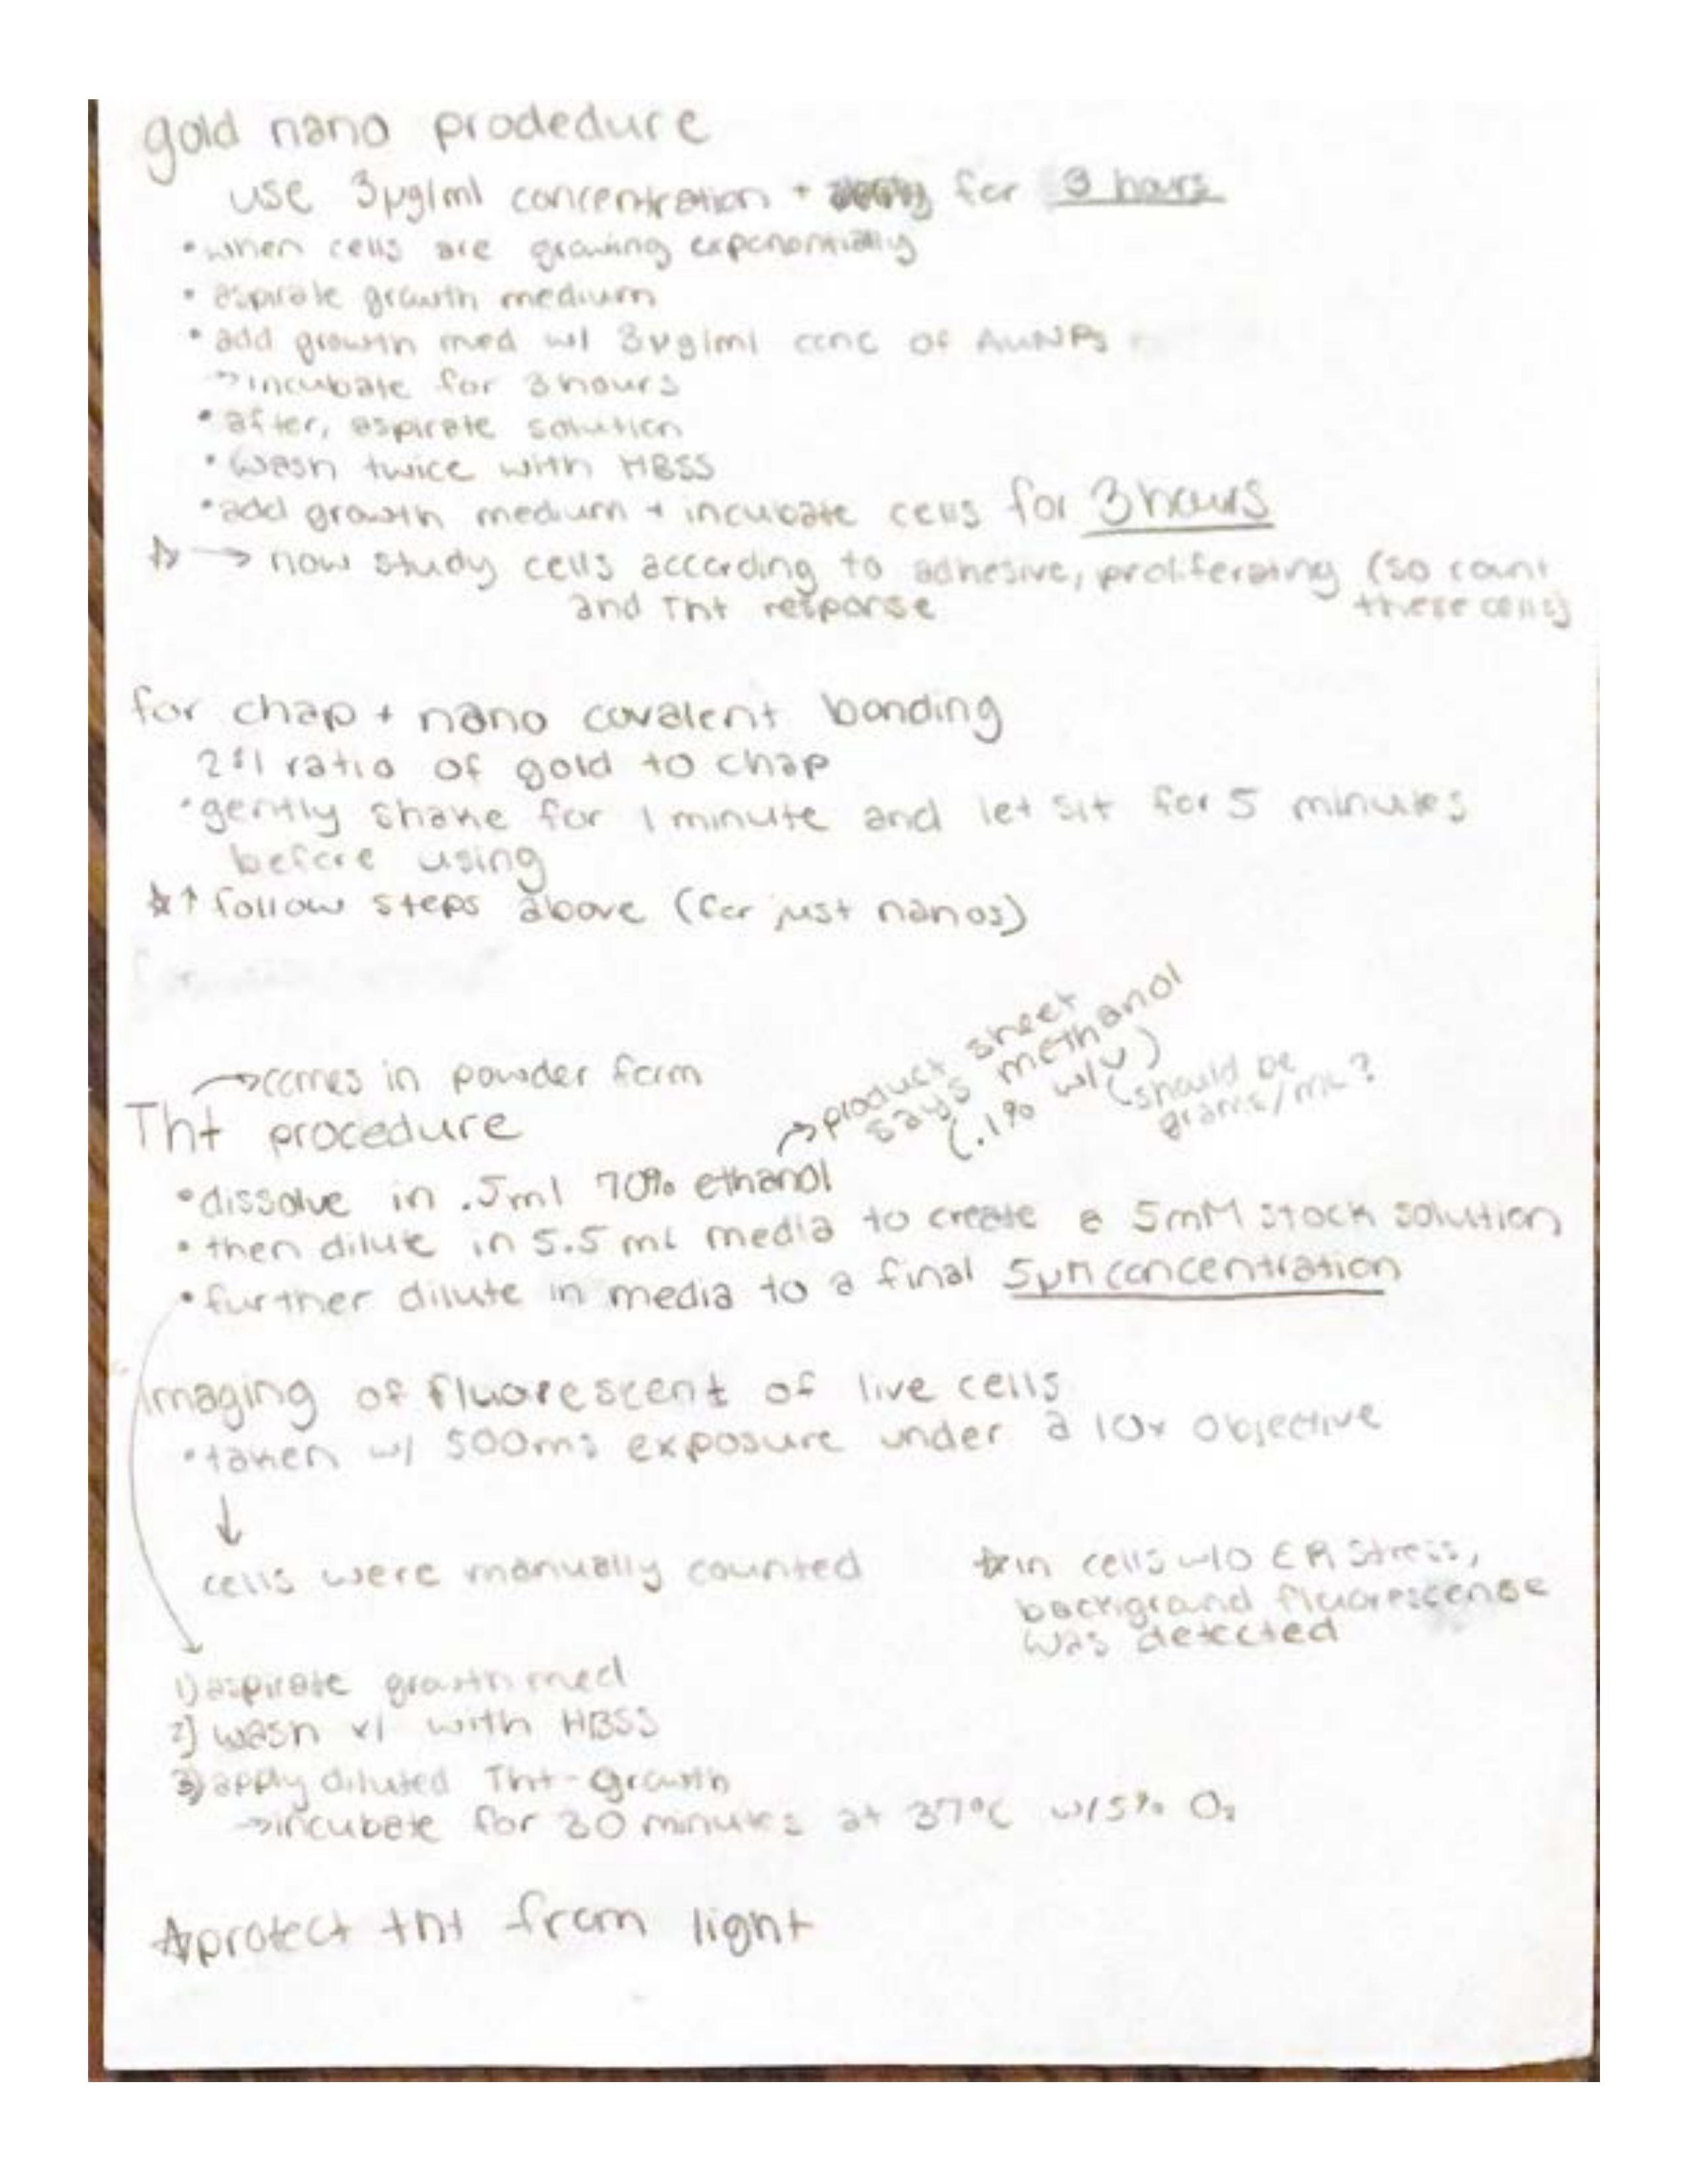 gold nano prodedure
use 3μg/ml concentration + for 3 hours
•when cells are growing exponentially
• aspirate growth medium
• add growth med w/ 3μg/ml conc of AuNPs
→incubate for 3 hours
•after, aspirate solution
•wash twice with HBSS
•add growth medium + incubate cells for 3 hours
☆ → now study cells according to adhesive, proliferating (so count
and Tht response these cells)
for chap + nano covalent bonding
2:1 ratio of gold to chap
•gently shake for 1 minute and let sit for 5 minutes
before using
☆↑ follow steps above (for just nanos)
→product sheet
says methanol
(.1% w/v)
(should be
grams/mL?
→comes in powder form
Tht procedure
•dissolve in .5ml 70% ethanol
• then dilute in 5.5 mL media to create a 5mM stock solution
•further dilute in media to a final 5μM concentration
imaging of fluorescent of live cells
•taken w/ 500ms exposure under a 10x objective
↓
cells were manually counted
☆in cells w/o ER Stress,
background fluorescense
was detected
1) aspirate growth med
2) wash x1 with HBSS
3) apply diluted Tht-growth
→incubate for 30 minutes at 37°C w/5% O₂
☆protect tht from light